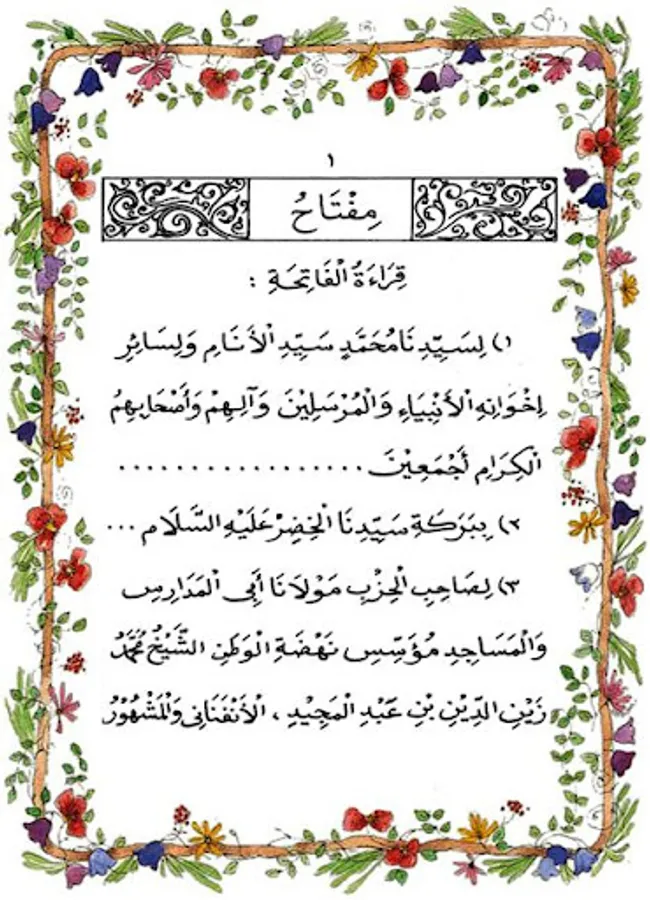 ١
مِفْتَاحُ
قِرَاءَةُ الْفَاتِحَةِ :
١) لِسَيِّدِنَا مُحَمَّدٍ سَيِّدِ الْأَنَامِ وَلِسَائِرِ
إِخْوَانِهِ الْأَنْبِيَاءِ وَالْمُرْسَلِيْنَ وَآلِهِمْ وَأَصْحَابِهِمُ
الْكِرَامِ أَجْمَعِيْنَ .................
٢) بِبَرَكَةِ سَيِّدِنَا الْخَضِرْ عَلَيْهِ السَّلَام ...
٣) لِصَاحِبِ الْحِزْبِ مَوْلَانَا أَبِى الْمَدَارِسِ
وَالْمَسَاجِدِ مُؤَسِّسِ نَهْضَةِ الْوَطَنِ الشَّيْخُ مُحَمَّدُ
زَيْنِ الدِّيْنِ بْنِ عَبْدِ الْمَجِيْدِ ، الْأَنْفَنَانِى وَالْمَشْهُوْرُ